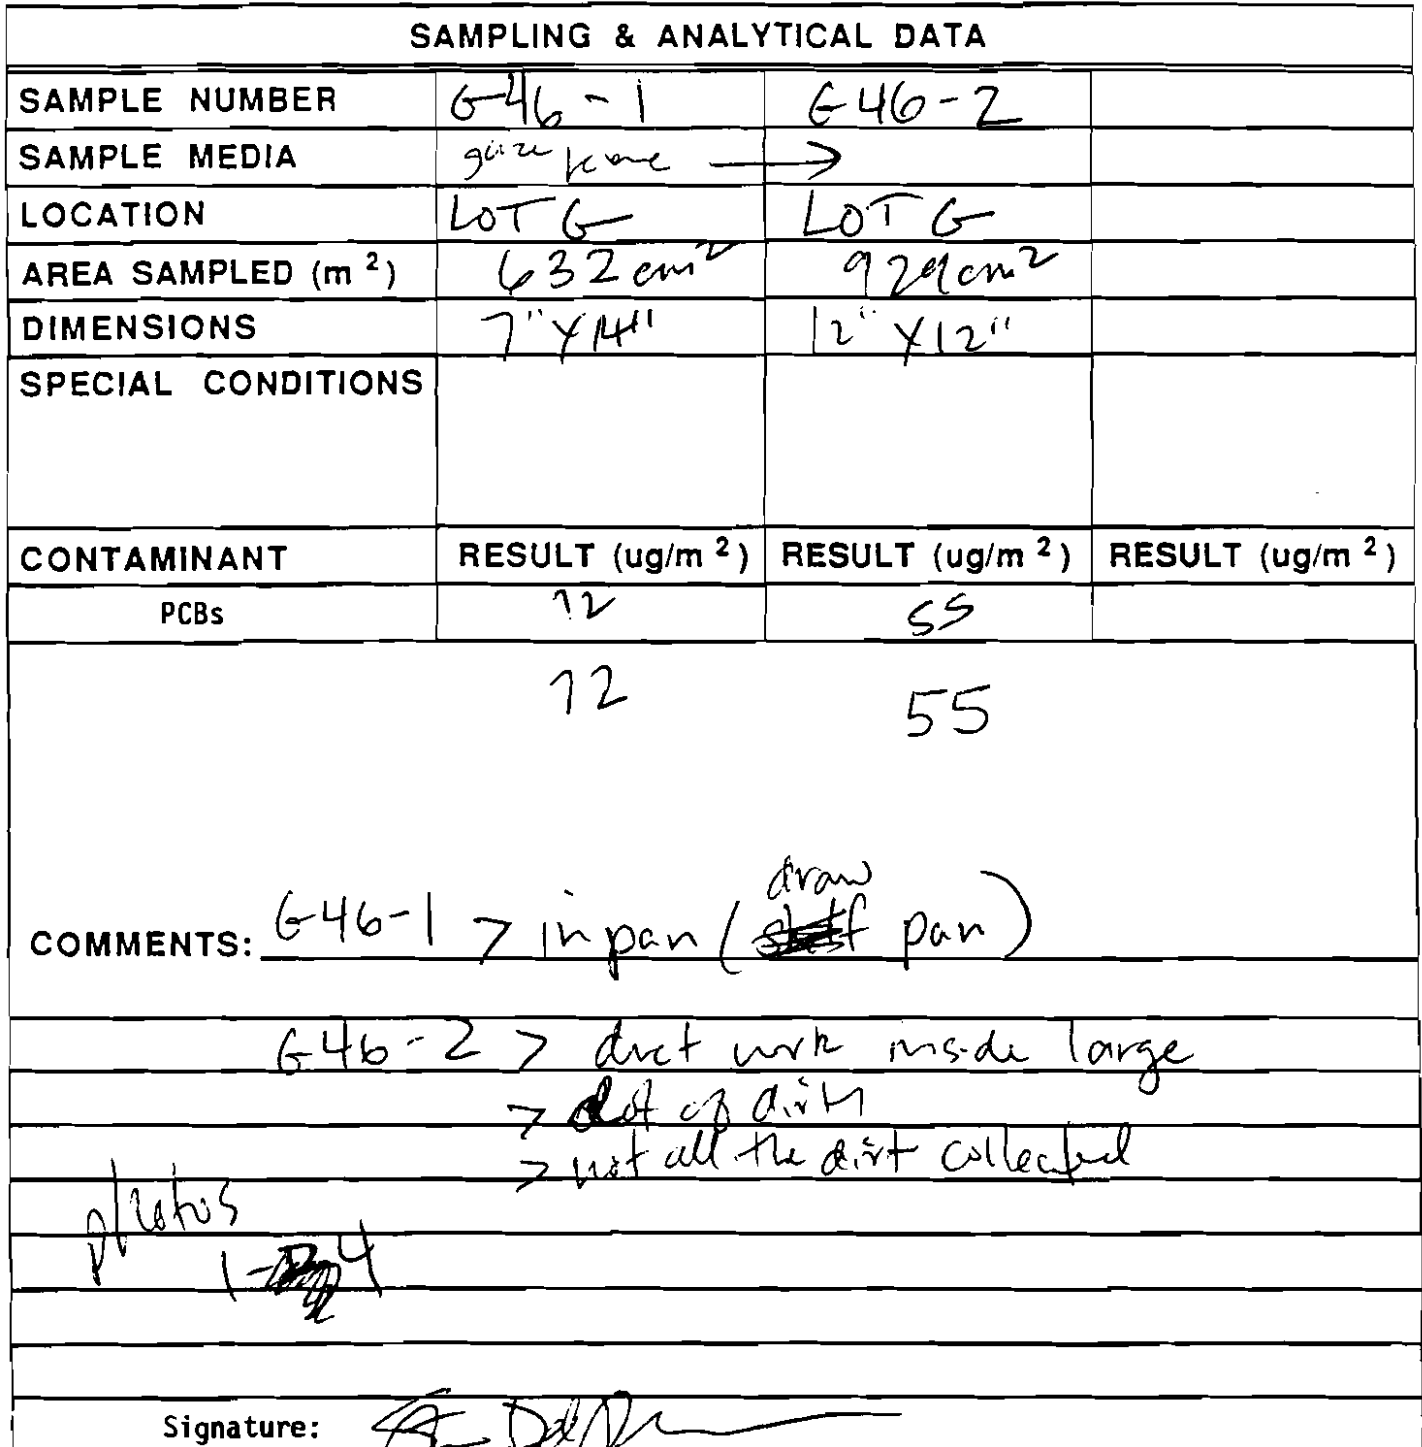 SAMPLING & ANALYTICAL DATA
SAMPLE NUMBER G46-1 G46-2
SAMPLE MEDIA →
LOCATION LOT G LOT G
AREA SAMPLED (m ²) 632 cm² 929 cm²
DIMENSIONS 7" X 14" 12" X 12"
SPECIAL CONDITIONS
CONTAMINANT RESULT (ug/m ²) RESULT (ug/m ²) RESULT (ug/m ²)
PCBs 72 55
72 55
draw
COMMENTS: G46-1 > in pan ( pan)
G46-2 > duct work inside large
> lot of dirt
> not all the dirt collected
photos
1-4
Signature: